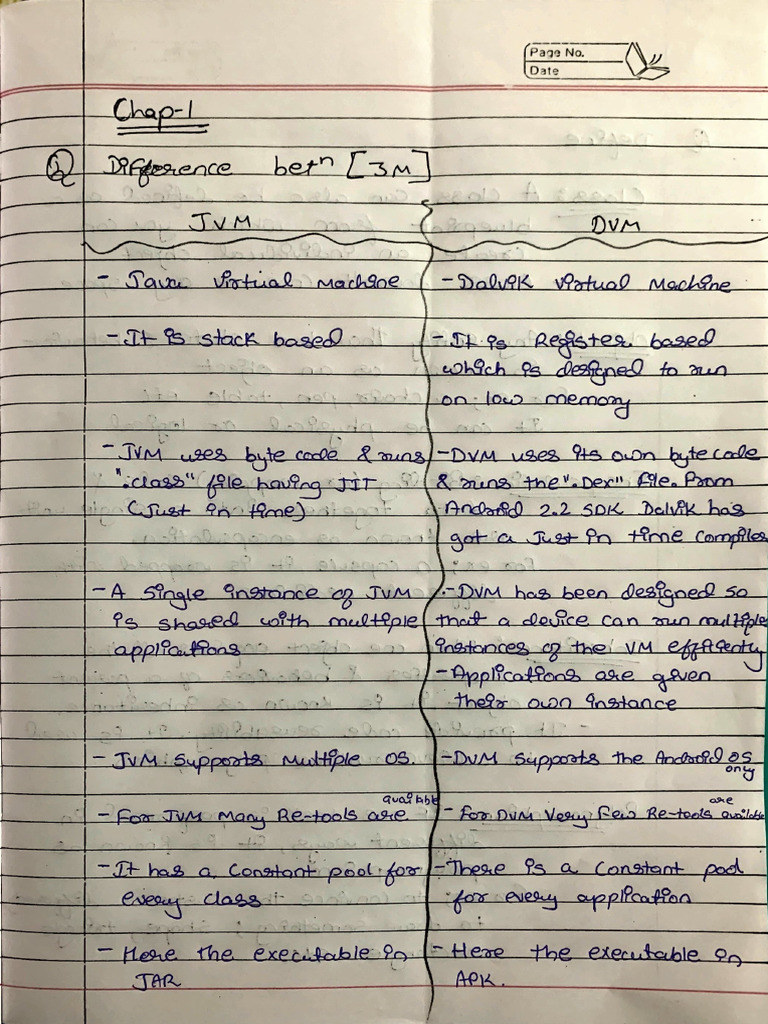 Page No.
Date
Chap-1
Q Difference betn [3M]
JVM
- Java Virtual Machine
- It is stack based
- JVM uses byte code & runs
".class" file having JIT
(Just in time)
- A single instance of JVM
is shared with multiple
applications
- JVM supports Multiple OS.
- For JVM Many Re-tools are available
- It has a constant pool for
every class
- Here the executable in
JAR
DVM
- Dalvik Virtual Machine
- It is Register based
which is designed to run
on low memory
- DVM uses its own byte code
& runs the ".Dex" file. From
Android 2.2 SDK Dalvik has
got a Just in time compiler
- DVM has been designed so
that a device can run multiple
instances of the VM efficiently
- Applications are given
their own instance
- DVM supports the Android OS only
- For DVM Very Few Re-tools are available
- There is a Constant pool
for every application
- Here the executable in
APK.